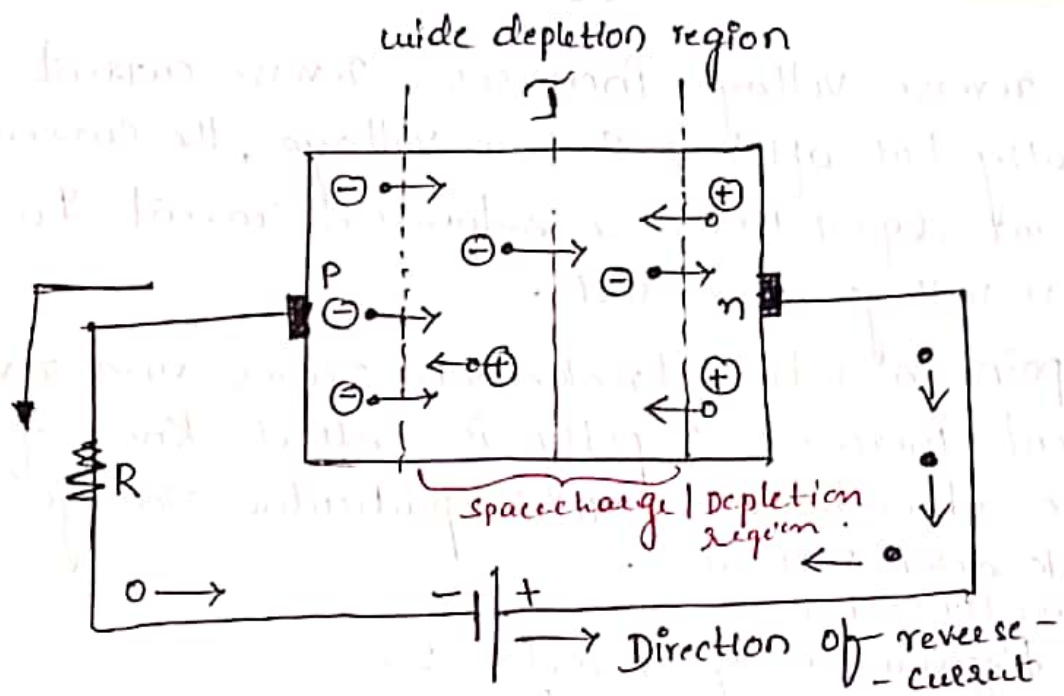 wide depletion region
J
P
n
R
spacecharge | Depletion
region.
- +
Direction of reverse-
- current